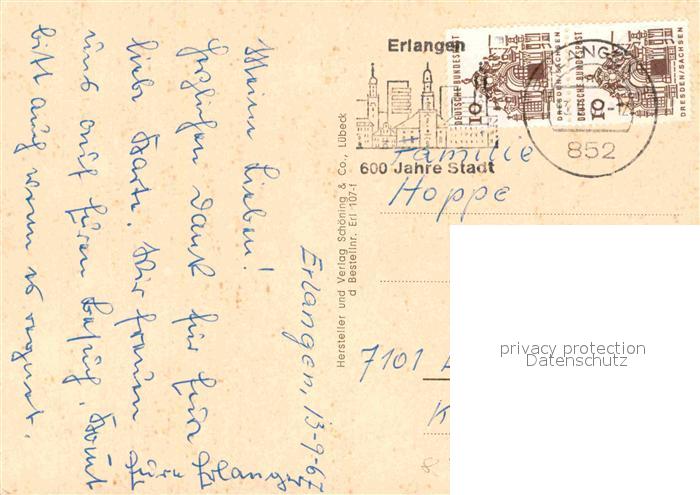 Erlangen, 13-9-67
Meine Lieben!
Herzlichen Dank für Eure
liebe Karte. Wir freuen
uns auf Euren Besuch. Kommt
bitte auch wenn es regnet.
Hersteller und Verlag Schöning & Co., Lübeck
d Bestellnr. Erl 107-f
Erlangen
600 Jahre Stadt
852
DEUTSCHE BUNDESPOST
10
DRESDEN/SACHSEN
DEUTSCHE BUNDESPOST
10
DRESDEN/SACHSEN
Familie
Hoppe
7101
K
8
privacy protection
Datenschutz